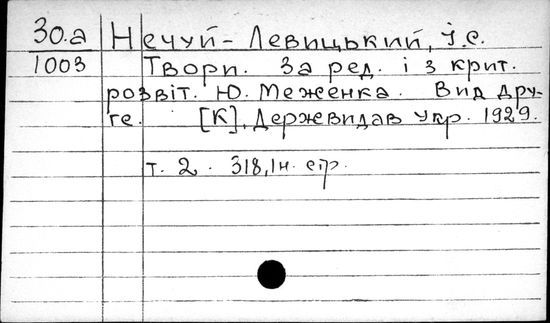 30.а Нечуй-Левицький, І.С.
1003 Твори. За ред. і з крит.
розвіт. Ю. Меженка. Вид дру-
ге. [К]. Держвидав Укр. 1929.
т. 2. 318,1н. стр.